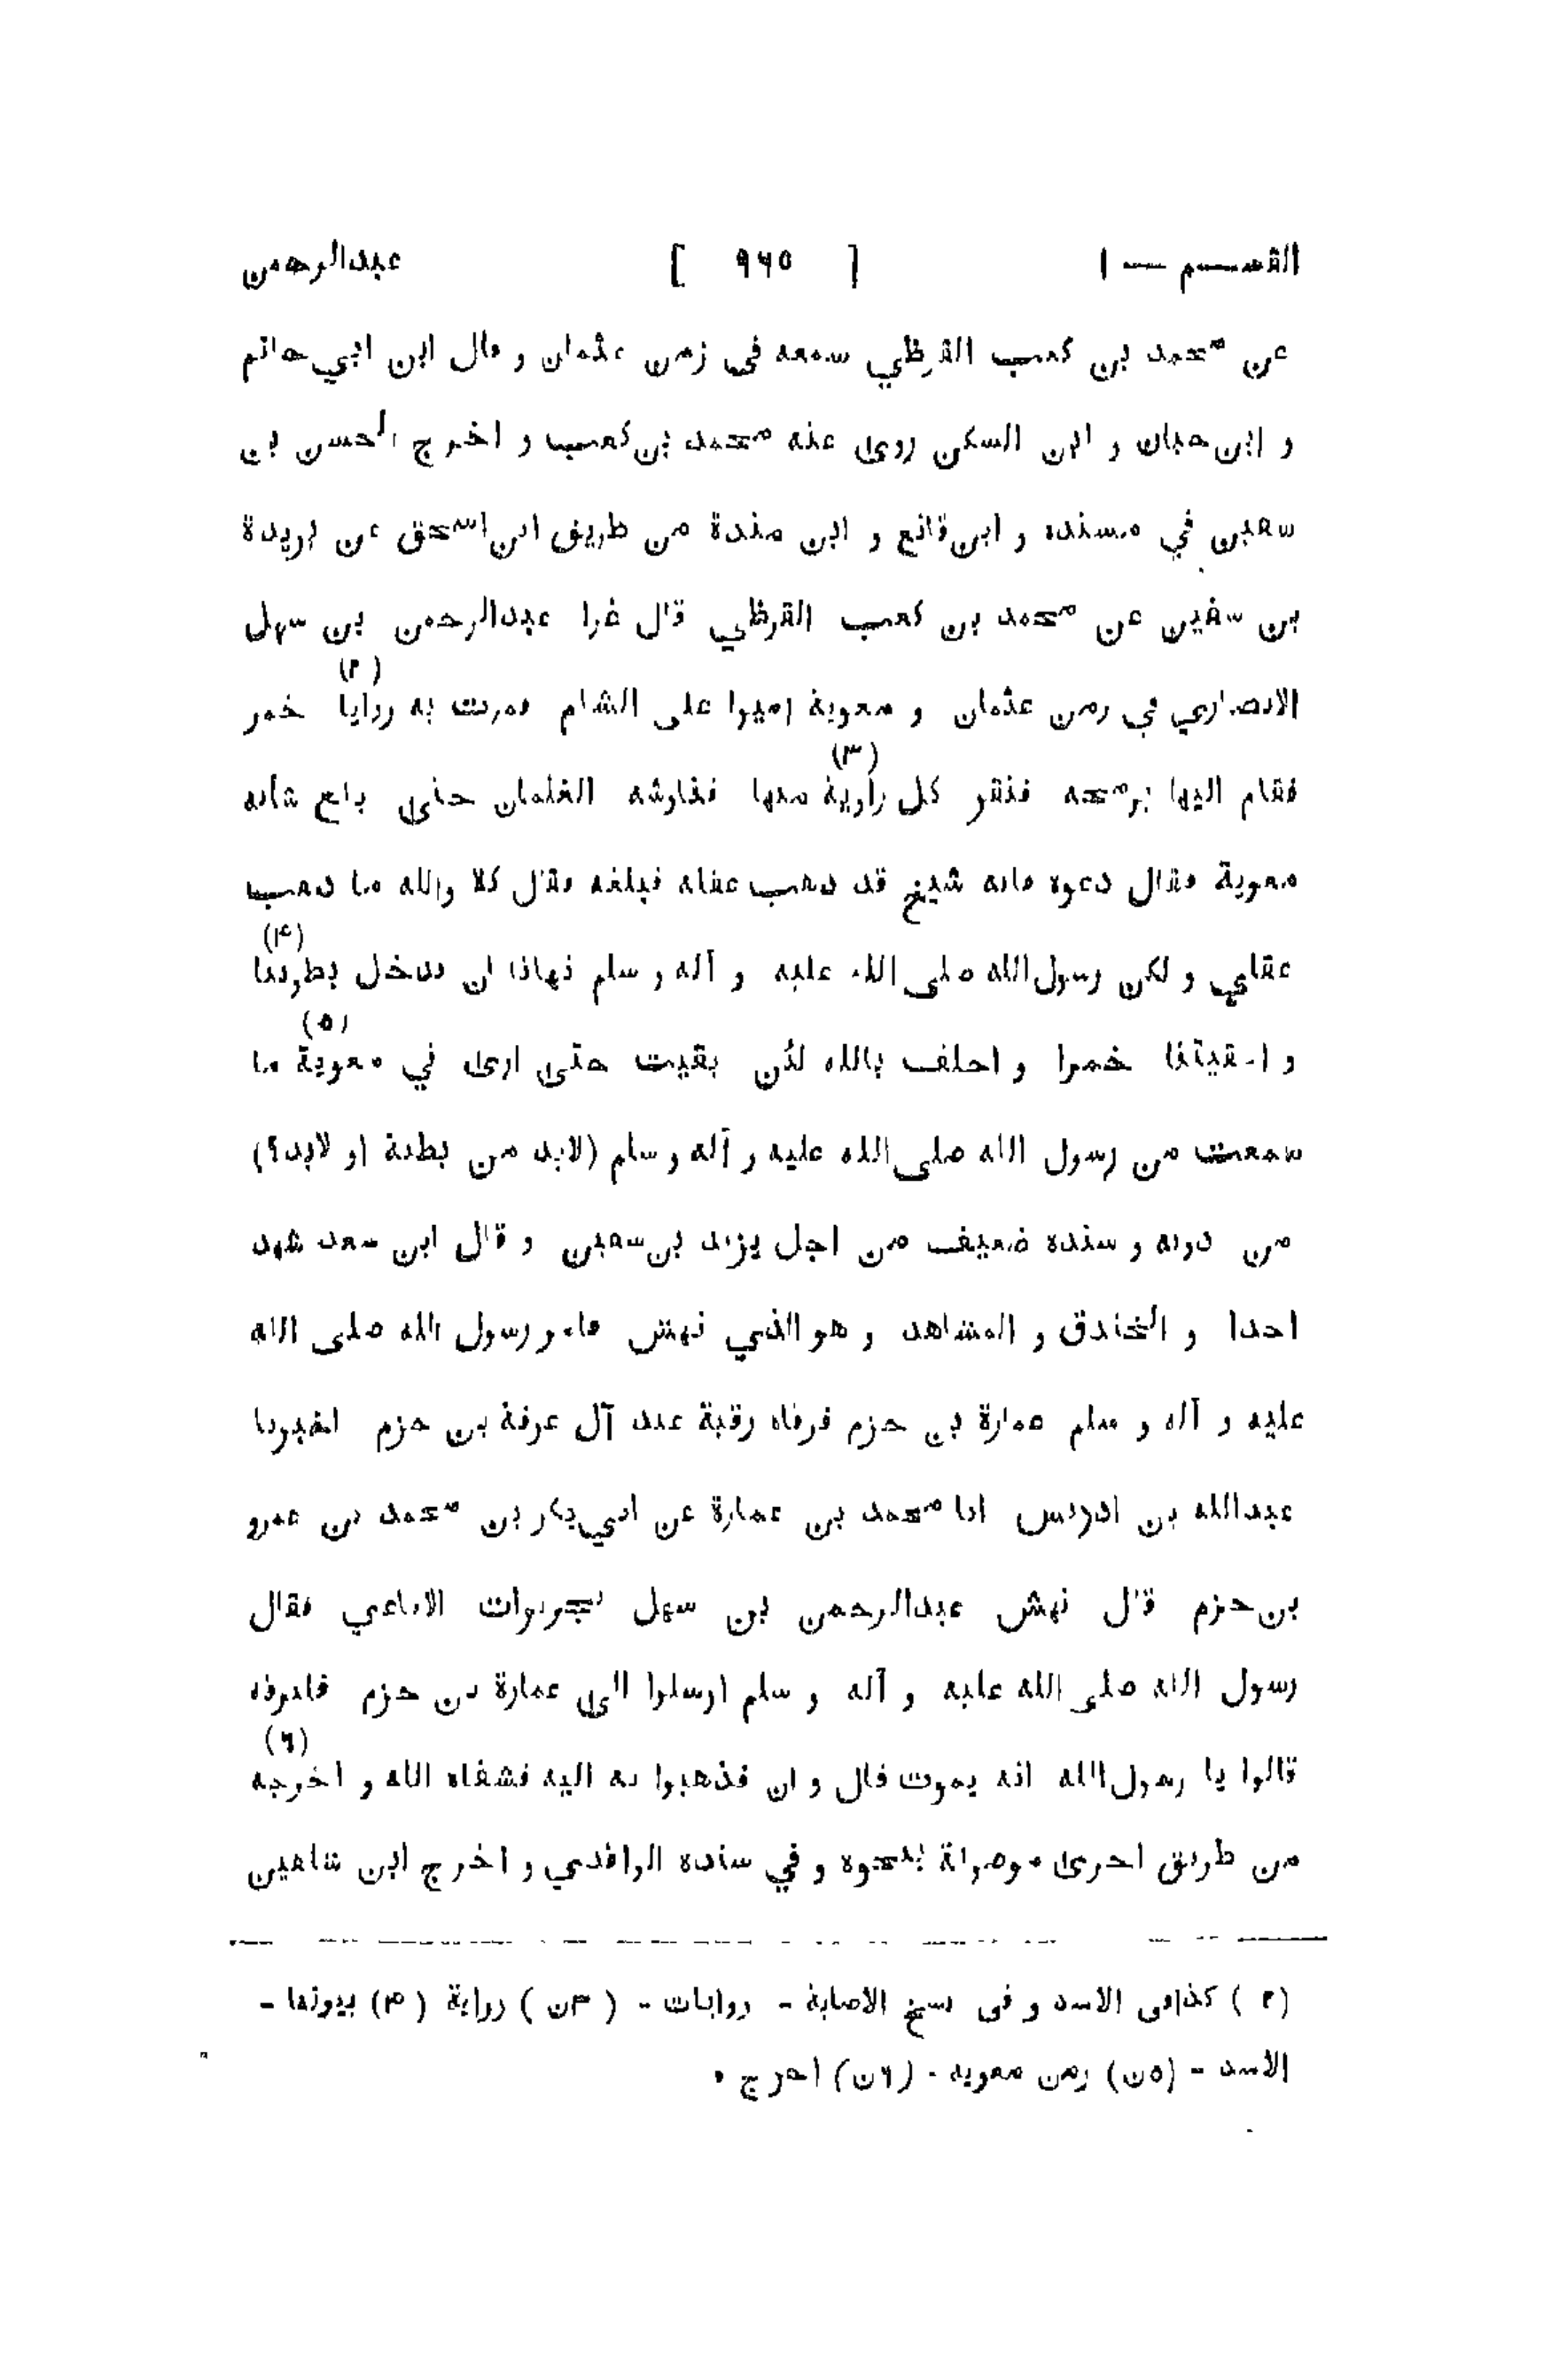 القسم — ١ [ ٩٦٥ ] عبدالرحمن
عن محمد بن كعب القرظي سمعه فى زمن عثمان و قال ابن ابي حاتم
و ابن حبان و ابن السكن روى عنه محمد بن كعب و اخرج الحسن بن
سفين في مسنده و ابن قانع و ابن مندة من طريق ابن اسحق عن بريدة
بن سفين عن محمد بن كعب القرظي قال غزا عبدالرحمن بن سهل
الانصاري في زمن عثمان و معوية اميرا على الشام فمرت به روايا (٢) خمر
فقام اليها برمحه فنقر كل راوية (٣) منها فناوشه الغلمان حتى بلغ شانه
معوية فقال دعوه فانه شيخ قد ذهب عقله فبلغه فقال كلا والله ما ذهب
عقلي و لكن رسول الله صلى الله عليه و آله و سلم نهانا ان ندخل بطوننا (۴)
و اسقيتنا خمرا و احلف بالله لئن بقيت حتى ارى في معوية (٥) ما
سمعت من رسول الله صلى الله عليه و آله و سلم (لابد من بطنه (او لابد؟)
من دونه و سنده ضعيف من اجل يزيد بن سفين و قال ابن سعد شهد
احدا و الخندق و المشاهد و هو الذي نهش فامر رسول الله صلى الله
عليه و آله و سلم عمارة بن حزم فرقاه رقية عند آل عرفة بن حزم اخبرنا
عبدالله بن ادريس انا محمد بن عمارة عن ابي بكر بن محمد بن عمرو
بن حزم قال نهش عبدالرحمن بن سهل الافاعي فقال
رسول الله صلى الله عليه و آله و سلم ارسلوا الى عمارة بن حزم فليرقه
قالوا يا رسول الله انه يموت قال و ان فذهبوا به اليه فشفاه الله و اخرجه (٦)
من طريق اخرى موصولة بنحوه و في سنده الواقدي و اخرج ابن شاهين
(٢) كذافى الاسد و فى نسخ الاصابة - روايات - (٣ن) رواية (۴) بيوتنا -
الاسد - (٥ن) زمن معوية - (٦ن) اخرج •